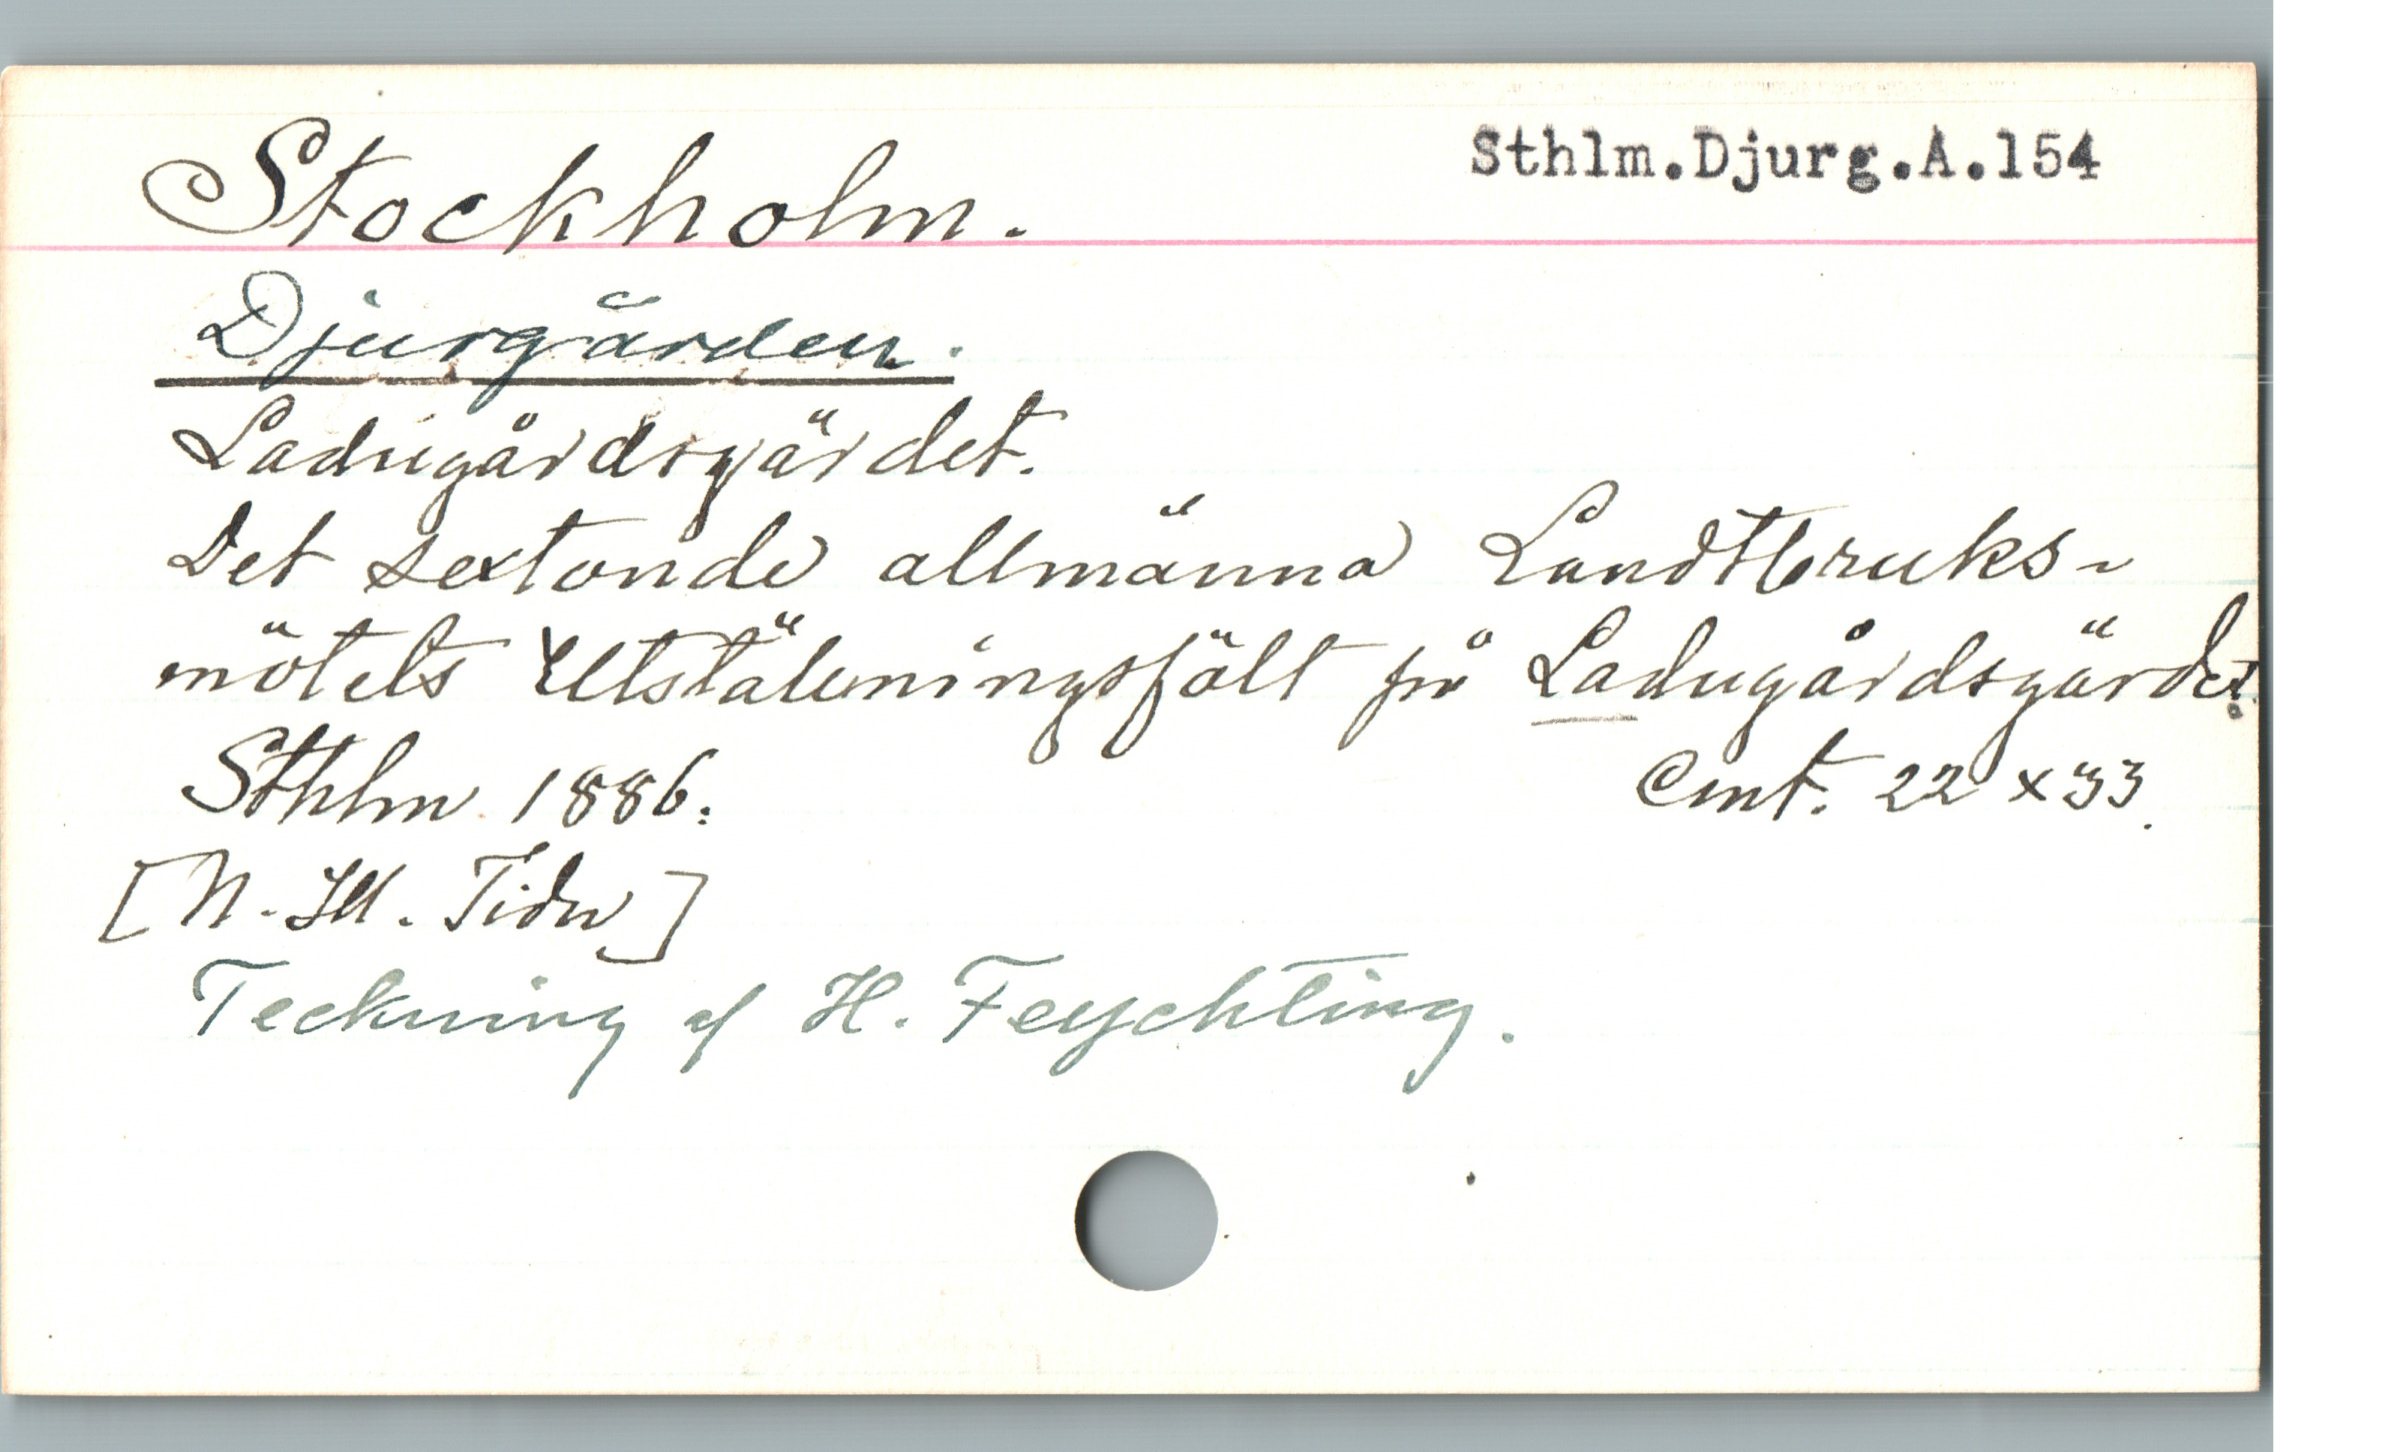 Sthlm.Djurg.A.154
Stockholm.
Djurgården.
Ladugårdsgärdet.
Det sextonde allmänna Landtbruks-
mötets Utställningsfält på Ladugårdsgärdet.
Sthlm 1886.
Cmt. 22 x 33.
[N. Ill. Tidn]
Teckning af H. Feychting.